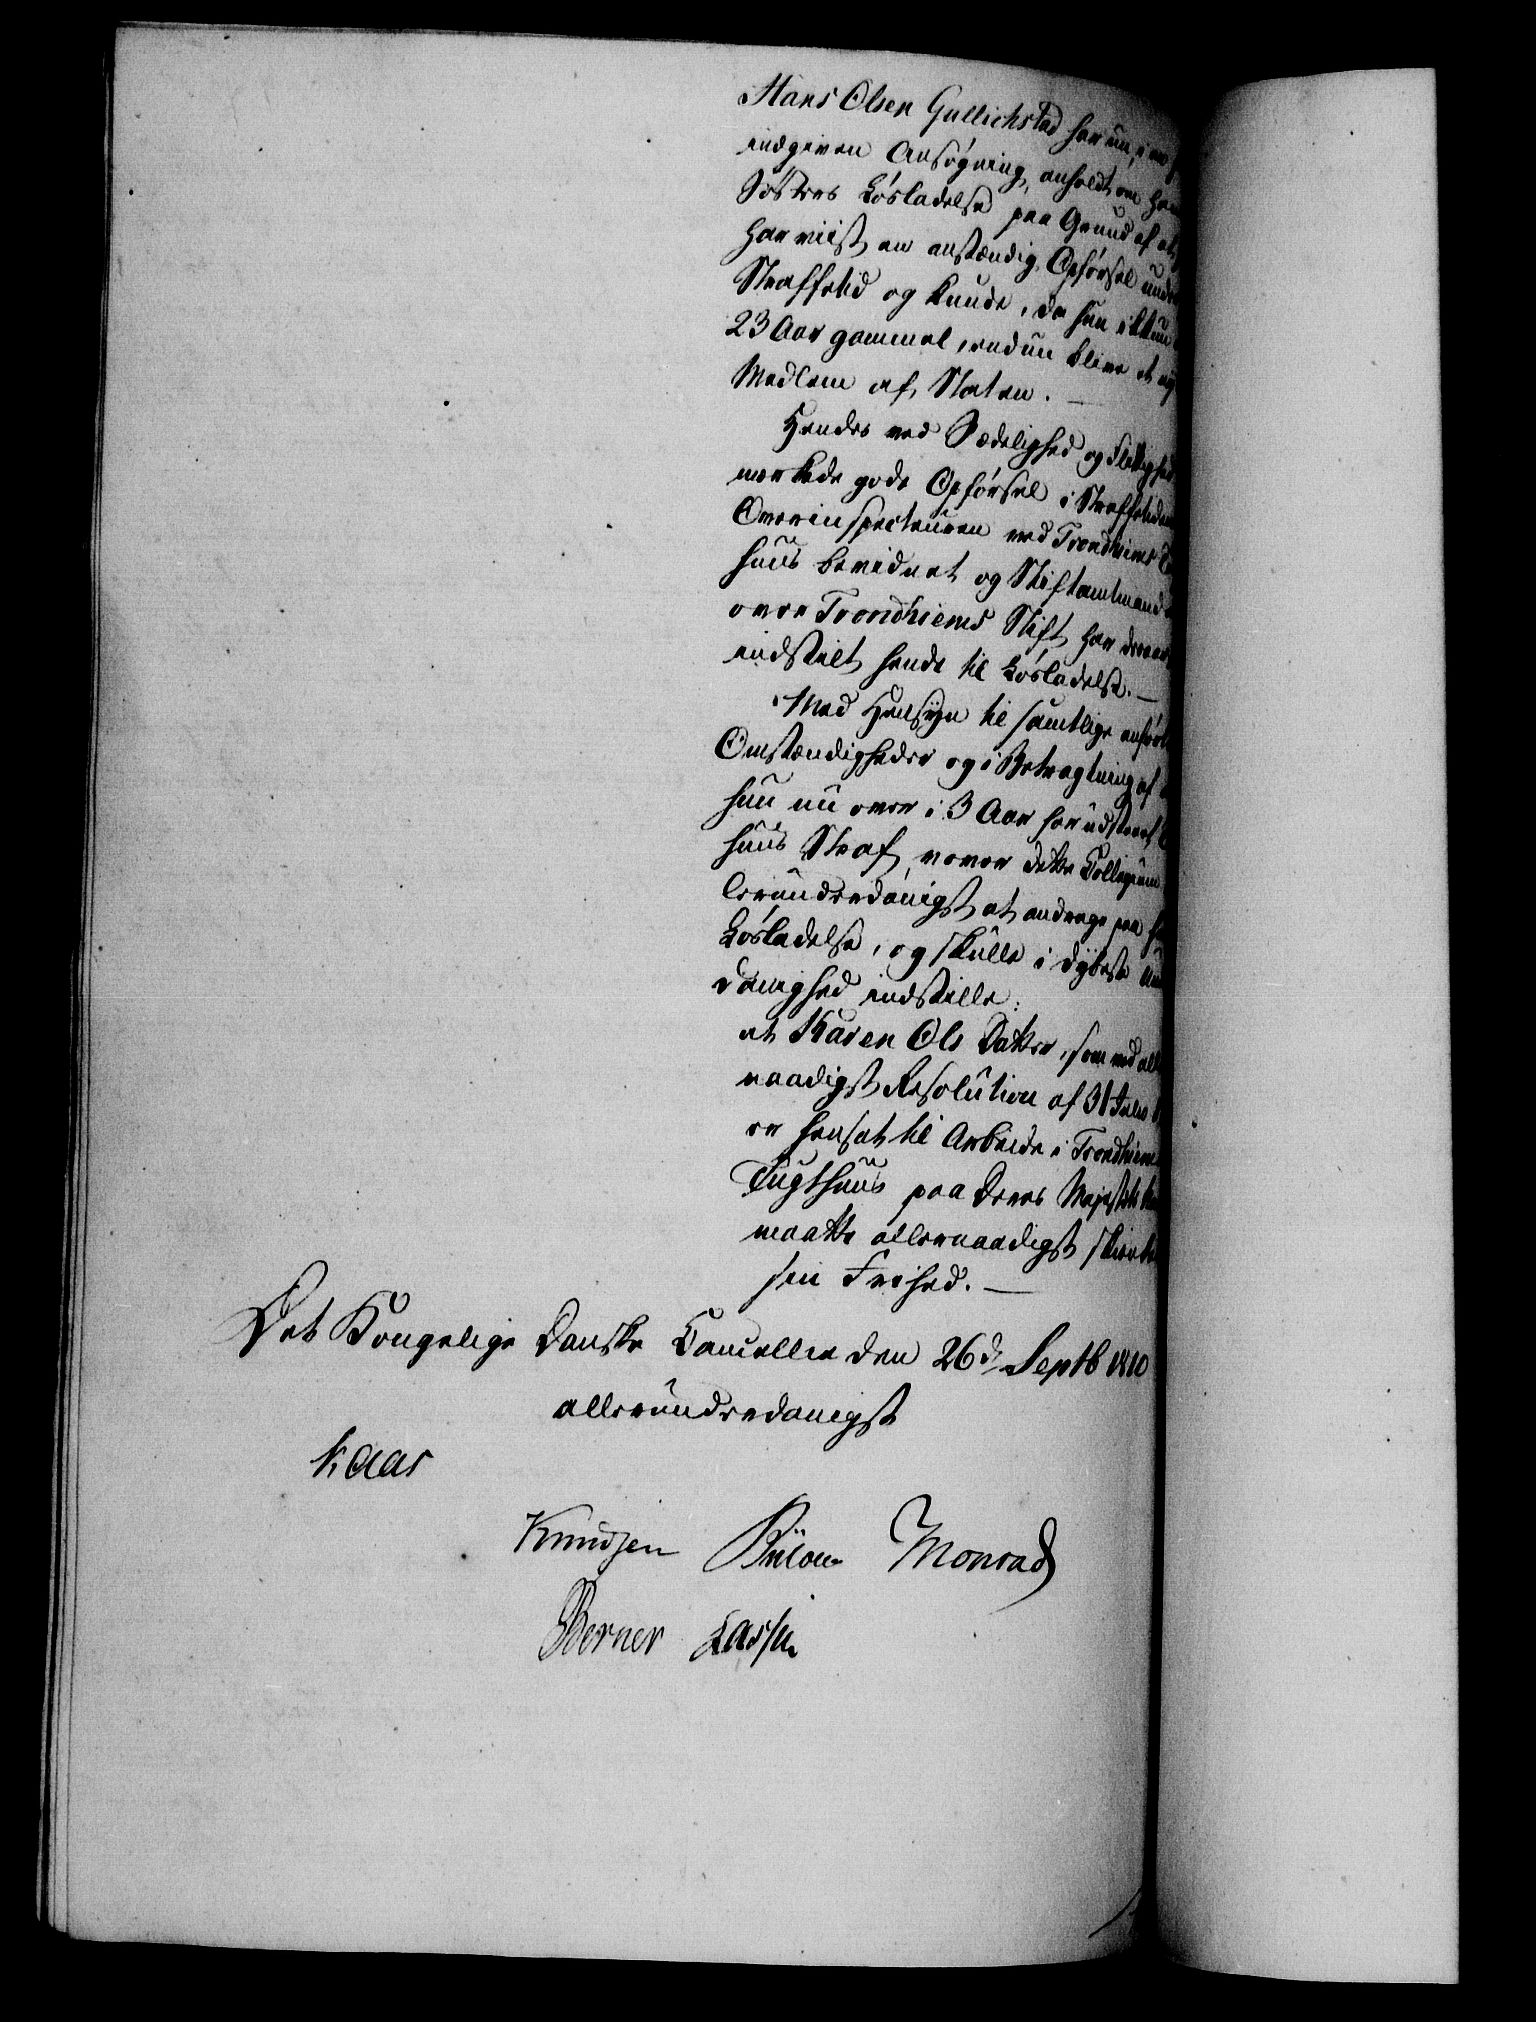 Hans Olsen Gullichstad har nu, i en
indgiven Ansøgning, anholdt om
Søsters Løsladelse paa Grund af at
har viist en anstændig Opførsel under
Straffetid og kunde, da hun ikkun
23 Aar gammel, endnu blive et
Medlem af Staten. —
Hendes ved Sædelighed og Flittighed
mærkede gode Opførsel i Straffetiden
Overinspecteuren ved Trondhiems
huus bevidnet og Stiftamtmand
over Trondhiems Stift har derover
indstilt hende til Løsladelse. —
Med Hensyn til samtlige anførte
Omstændigheder og i Betragtning af
hun nu over i 3 Aar har udstaaet
huus Straf, vover dette Collegium
lerunderdanigst at andrage paa
Løsladelse, og skulle i dybeste Un
danighed indstille:
at Karen Ols Datter, som ved all
naadigst Resolution af 31 Julii
er hensat til Arbeide i Trondhiems
Tugthuus paa Deres Majestæts
maatte allernaadigst skienkes
sin Frihed. —
Det Kongelige Danske Cancellie den 26d Septb 1810
allerunderdanigst
Kaas
Knudsen Bülow Monrad
Berner Lassen